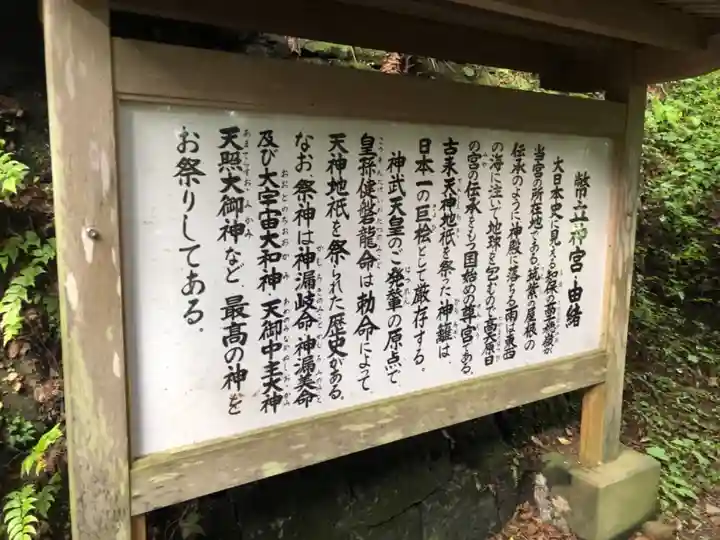 幣立神宮・由緒
大日本史に見える知保の高千穂嶺が
当宮の所在地である。筑紫の屋根の
伝承のように神殿に落ちる雨は東西
の海に注いで地球を包むので高天原日
の宮の伝承をもつ国始めの尊宮である。
古来天神地祇を祭った神籬は、
日本一の巨桧として厳存する。
神武天皇のご発輦の原点で、
皇孫健磐龍命は勅命によって、
天神地祇を祭られた歴史がある。
なお、祭神は神漏岐命・神漏美命
及び大宇宙大和神 天御中主大神
天照大御神など、最高の神を
お祭りしてある。